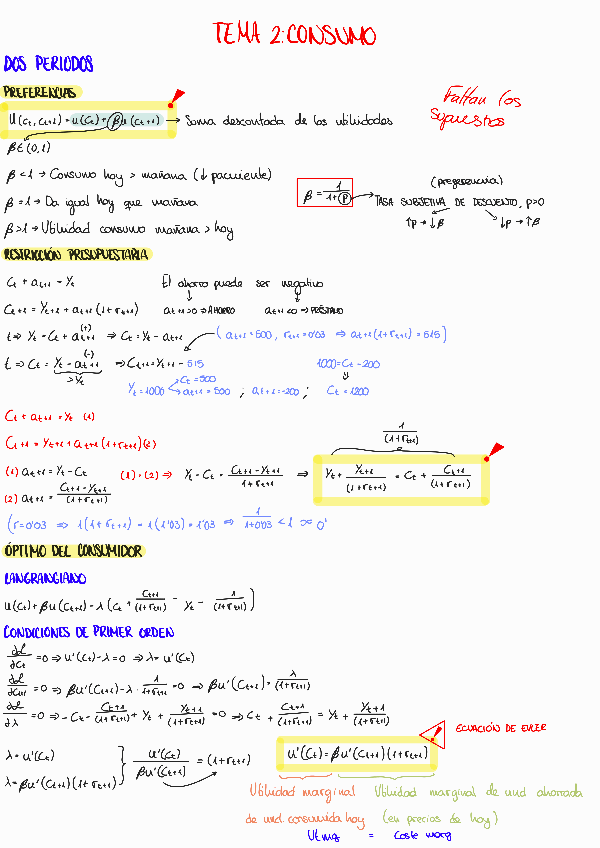 TEMA 2: CONSUMO
DOS PERIODOS
PREFERENCIAS
Faltan los supuestos
U(Ct, Ct+1) = u(Ct) + βu(Ct+1) → Suma descontada de las utilidades
β∈(0,1)
β < 1 → Consumo hoy > mañana (↓ paciente)
β = 1 → Da igual hoy que mañana
β > 1 → Utilidad consumo mañana > hoy
β = 1/(1+ρ) → TASA SUBJETIVA DE DESCUENTO, ρ>0
(preferencia)
↑ρ → ↓β ↓ρ → ↑β
RESTRICCIÓN PRESUPUESTARIA
Ct + at+1 = Yt El ahorro puede ser negativo
Ct+1 = Yt+1 + at+1(1+rt+1) at+1>0 ⇒ AHORRO at+1<0 ⇒ PRÉSTAMO
t ⇒ Yt = Ct + at+1 (+) ⇒ Ct = Yt - at+1 (at+1 = 500, rt+1 = 0'03 ⇒ at+1(1+rt+1) = 515)
t ⇒ Ct = Yt - at+1 (-) ⇒ Ct+1 = Yt+1 - 515 1000 = Ct - 200
>Yt
Yt = 1000 Ct = 500 at+1 = 500 ; at+1 = -200 ; Ct = 1200
Ct + at+1 = Yt (1)
Ct+1 = Yt+1 + at+1(1+rt+1) (2)
1/(1+rt+1)
(1) at+1 = Yt - Ct
(2) at+1 = (Ct+1 - Yt+1)/(1+rt+1)
(1) = (2) ⇒ Yt - Ct = (Ct+1 - Yt+1)/(1+rt+1) ⇒ Yt + Yt+1/(1+rt+1) = Ct + Ct+1/(1+rt+1)
(r = 0'03 ⇒ 1(1+rt+1) = 1(1'03) = 1'03 ⇒ 1/(1+0'03) < 1
ÓPTIMO DEL CONSUMIDOR
LANGRANGIANO
u(Ct) + βu(Ct+1) - λ(Ct + Ct+1/(1+rt+1) - Yt - 1/(1+rt+1))
CONDICIONES DE PRIMER ORDEN
∂L/∂Ct = 0 ⇒ u'(Ct) - λ = 0 ⇒ λ = u'(Ct)
∂L/∂Ct+1 = 0 ⇒ βu'(Ct+1) - λ · 1/(1+rt+1) = 0 ⇒ βu'(Ct+1) = λ/(1+rt+1)
∂L/∂λ = 0 ⇒ -Ct - Ct+1/(1+rt+1) + Yt + Yt+1/(1+rt+1) = 0 ⇒ Ct + Ct+1/(1+rt+1) = Yt + Yt+1/(1+rt+1)
λ = u'(Ct)
λ = βu'(Ct+1)(1+rt+1)
u'(Ct)/βu'(Ct+1) = (1+rt+1)
u'(Ct) = βu'(Ct+1)(1+rt+1)
ECUACIÓN DE EULER
Utilidad marginal de und consumida hoy
Utilidad marginal de und ahorrada (en precios de hoy)
Utmg = Coste marg